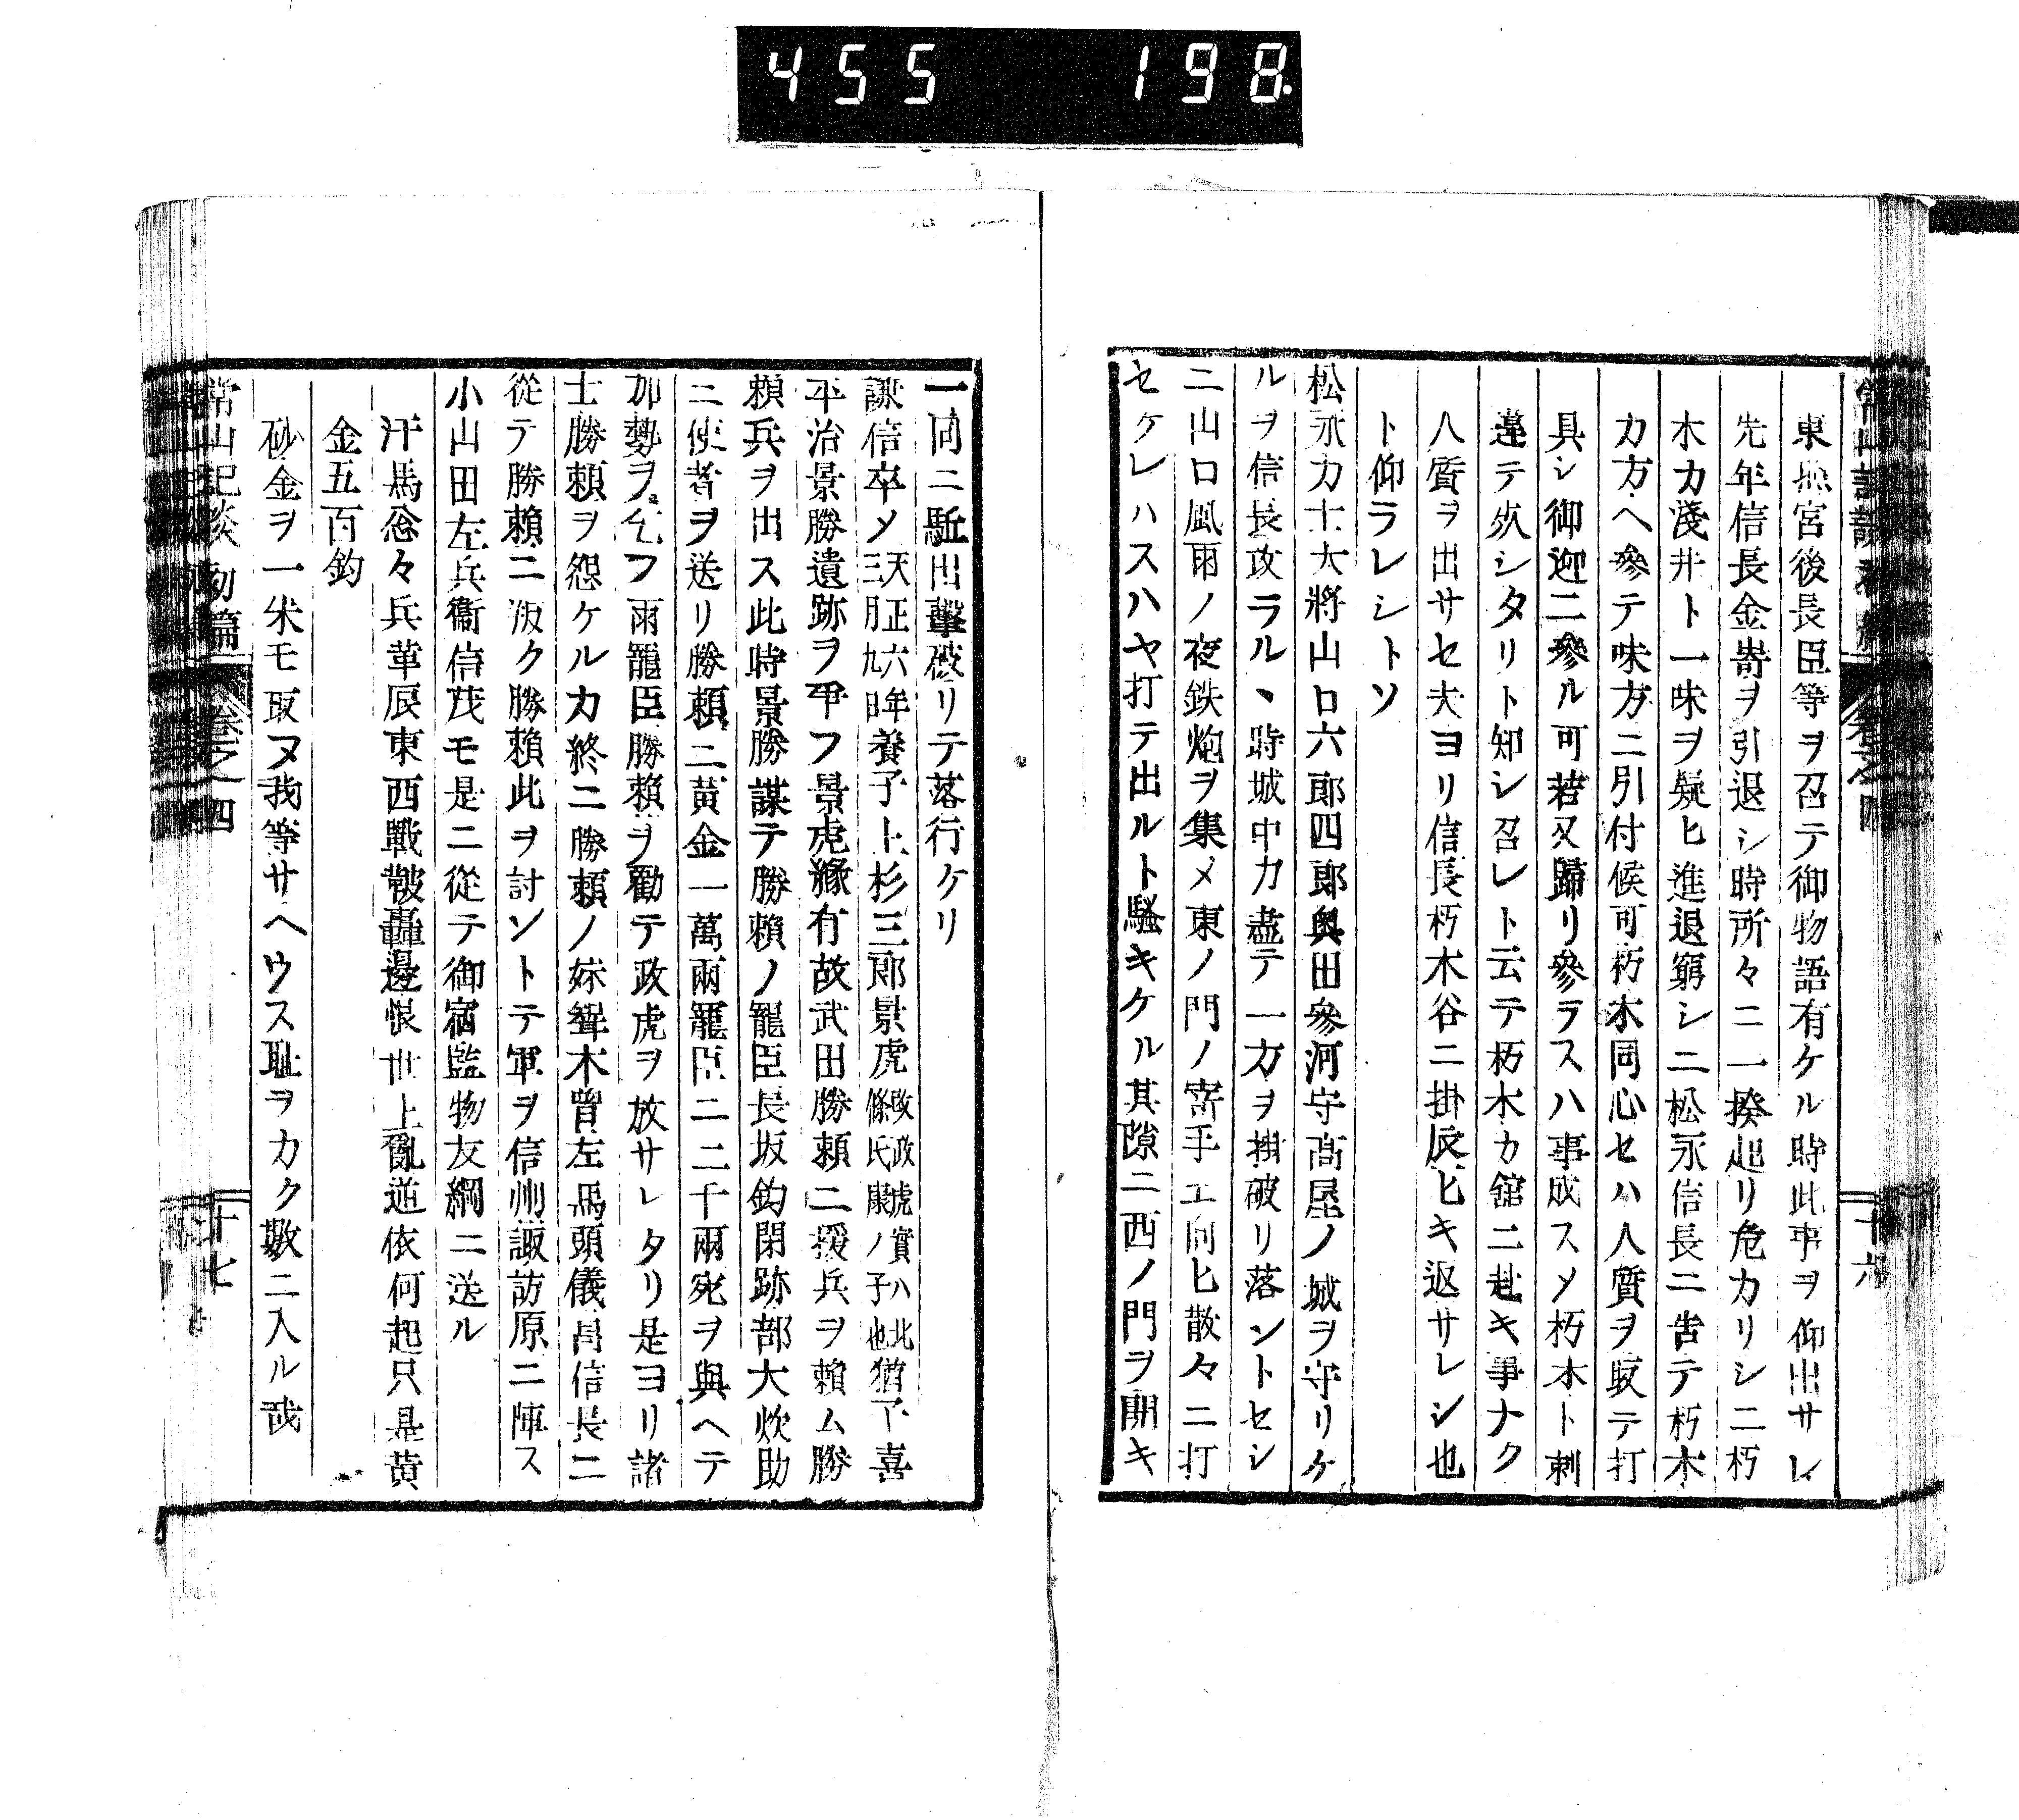 455 198
東照宮後長臣等ヲ召テ御物語有ケル時此事ヲ仰出サレ
先年信長金嵜ヲ引退シ時所々ニ一揆起リ危カリシニ朽
木カ淺井ト一味ヲ疑ヒ進退窮シニ松永信長ニ告テ朽木
カ方ヘ參テ味方ニ引付候可朽木同心セハ人質ヲ取テ打
具シ御迎ニ參ル可若又歸リ參ラスハ事成スメ朽木ト刺
違テ死シタリト知シ召レト云テ朽木カ舘ニ赴キ事ナク
人質ヲ出サセ夫ヨリ信長朽木谷ニ掛辰ヒキ返サレシ也
ト仰ラレシトソ
松永カ士大將山口六郎四郎奥田參河守高屋ノ城ヲ守リケ
ルヲ信長攻ラルヽ時城中力盡テ一方ヲ掛破リ落ントセシ
ニ山口風雨ノ夜鉄炮ヲ集メ東ノ門ノ寄手エ向ヒ散々ニ打
セケレハスハヤ打テ出ルト騷キケル其隙ニ西ノ門ヲ開キ
一同ニ駈出擊破リテ落行ケリ
謙信卒メ天正六年三月九日養子上杉三郎景虎改政虎實ハ北條氏康ノ子也猶子喜
平治景勝遺跡ヲ爭フ景虎縁有故武田勝頼ニ援兵ヲ頼ム勝
頼兵ヲ出ス此時景勝謀テ勝頼ノ寵臣長坂釣閑跡部大炊助
ニ使者ヲ送リ勝頼ニ黄金一萬兩寵臣ニ二千兩宛ヲ與ヘテ
加勢ヲ乞フ兩寵臣勝頼ヲ勸テ政虎ヲ放サレタリ是ヨリ諸
士勝頼ヲ怨ケルカ終ニ勝頼ノ妹聟木曾左馬頭儀昌信長ニ
從テ勝頼ニ叛ク勝頼此ヲ討ントテ軍ヲ信州諏訪原ニ陣ス
小山田左兵衞信茂モ是ニ從テ御宿監物友綱ニ送ル
汗馬怱々兵革辰東西戰皷轟邊恨世上亂逆依何起只是黄
金五百鈞
砂金ヲ一朱モ取ヌ我等サヘウス恥ヲカク數ニ入ル哉
常山紀談 初篇 卷之四 十七